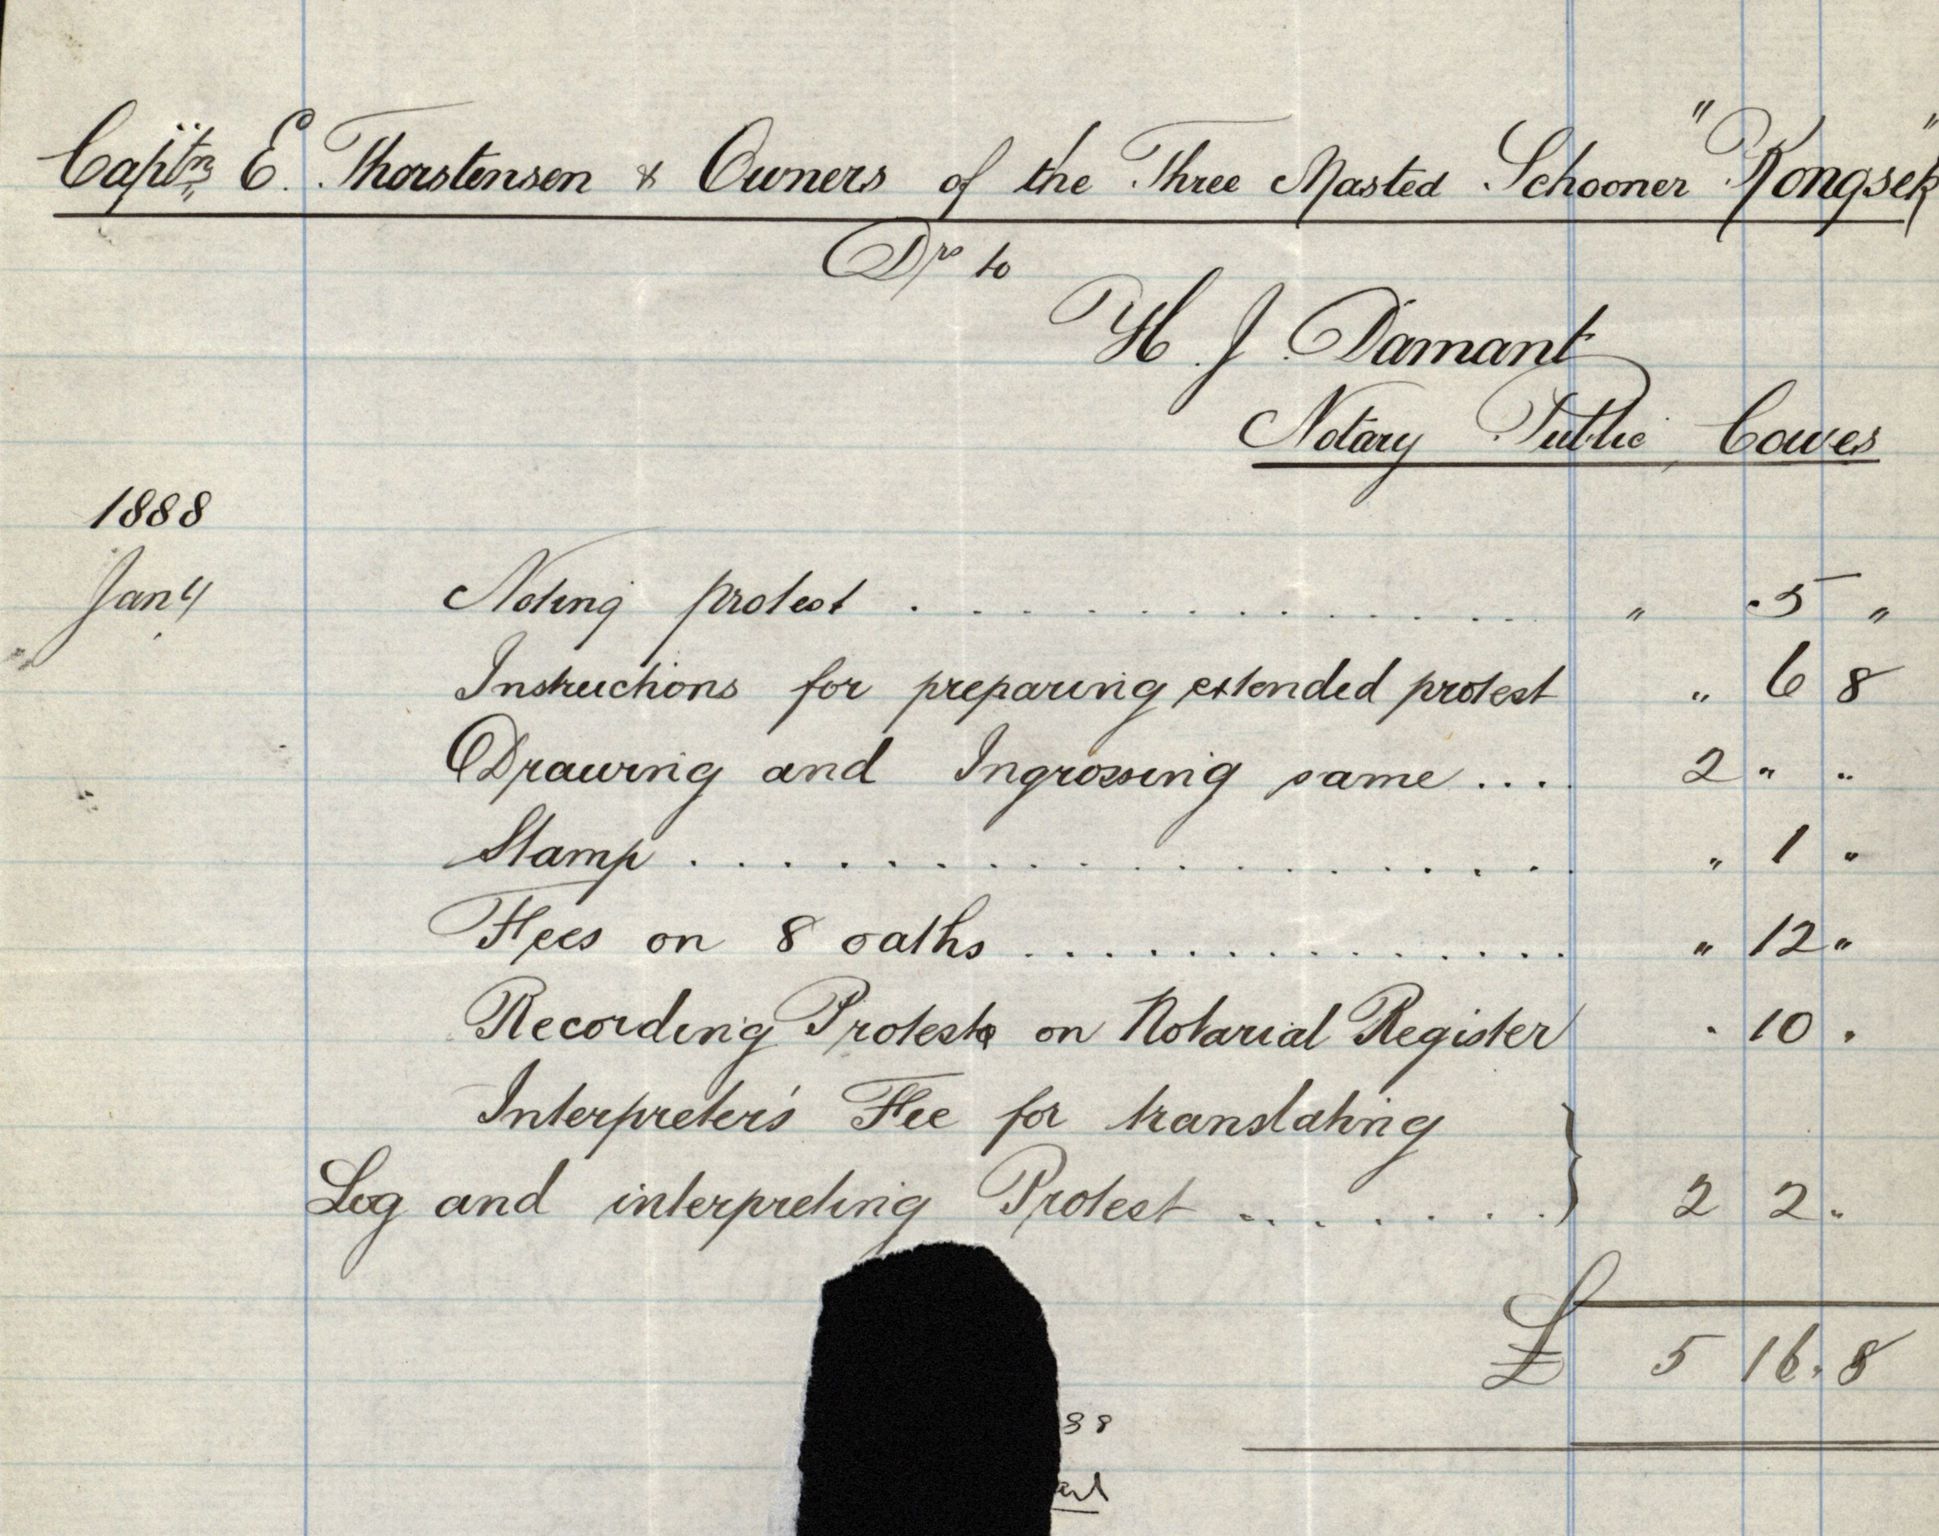 Captn E. Thorstensen & Owners of the Three Masted Schooner "Kongsek"
Drs to
H. J. Damant
Notary Public, Cowes
1888
Jan 4 Noting protest . . . . . . . . . . . . . . " 5 "
Instructions for preparing extended protest " 6 8
Drawing and Ingrossing same .... 2 " "
Stamp . . . . . . . . . . . . . . . . . " 1 "
Fees on 8 oaths . . . . . . . . . . . . . . " 12 "
Recording Protest on Notarial Register " 10 "
Interpreter's Fee for translating
Log and interpreting Protest . . . . . . . } 2 2 "
£ 5 16. 8
88